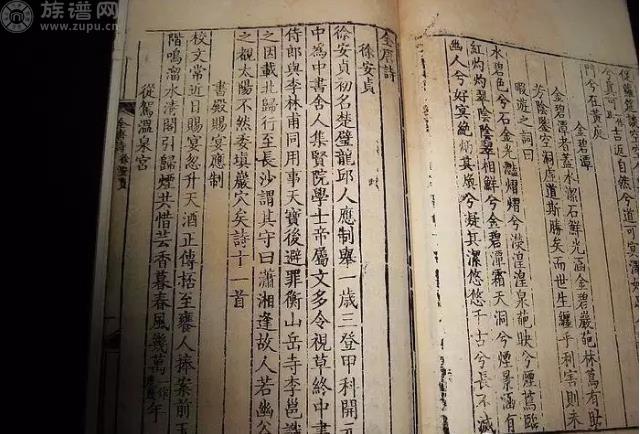 族谱网
www.zupu.cn
門兮在黄庭
金碧潭
金碧潭者蓋水潔石鮮光涵金碧巖葩林蔦有助
芳陰鑒空洞虚道斯勝矣而世生纒乎利害則未
暇遊之詞曰
水碧色兮石金光灩熠熠兮瀠湟湟泉葩映兮煙蔦臨
紅灼灼翠陰陰翠相鮮兮金碧潭霜天洞兮煙景涵有
幽人兮好冥絶炳其煥兮凝其潔悠悠千古兮長不滅
全唐詩
徐安貞
徐安貞初名楚璧龍邱人應制舉一歲三登甲科開元
中為中書舍人集賢院學士帝屬文多令視草終中書
侍郎與李林甫同用事天寶後避罪衡山岳寺李邕識
之因載北歸行至長沙謂其守曰瀟湘逢故人若幽谷
之覩太陽不然委塡巖穴矣詩十一首
書殿賜宴應制
校文常近日賜宴忽升天酒正傳杯至饔人捧案前玉
階鳴溜水清閣引歸煙共惜芸香暮春風幾萬一作應幾年
從駕溫泉宮